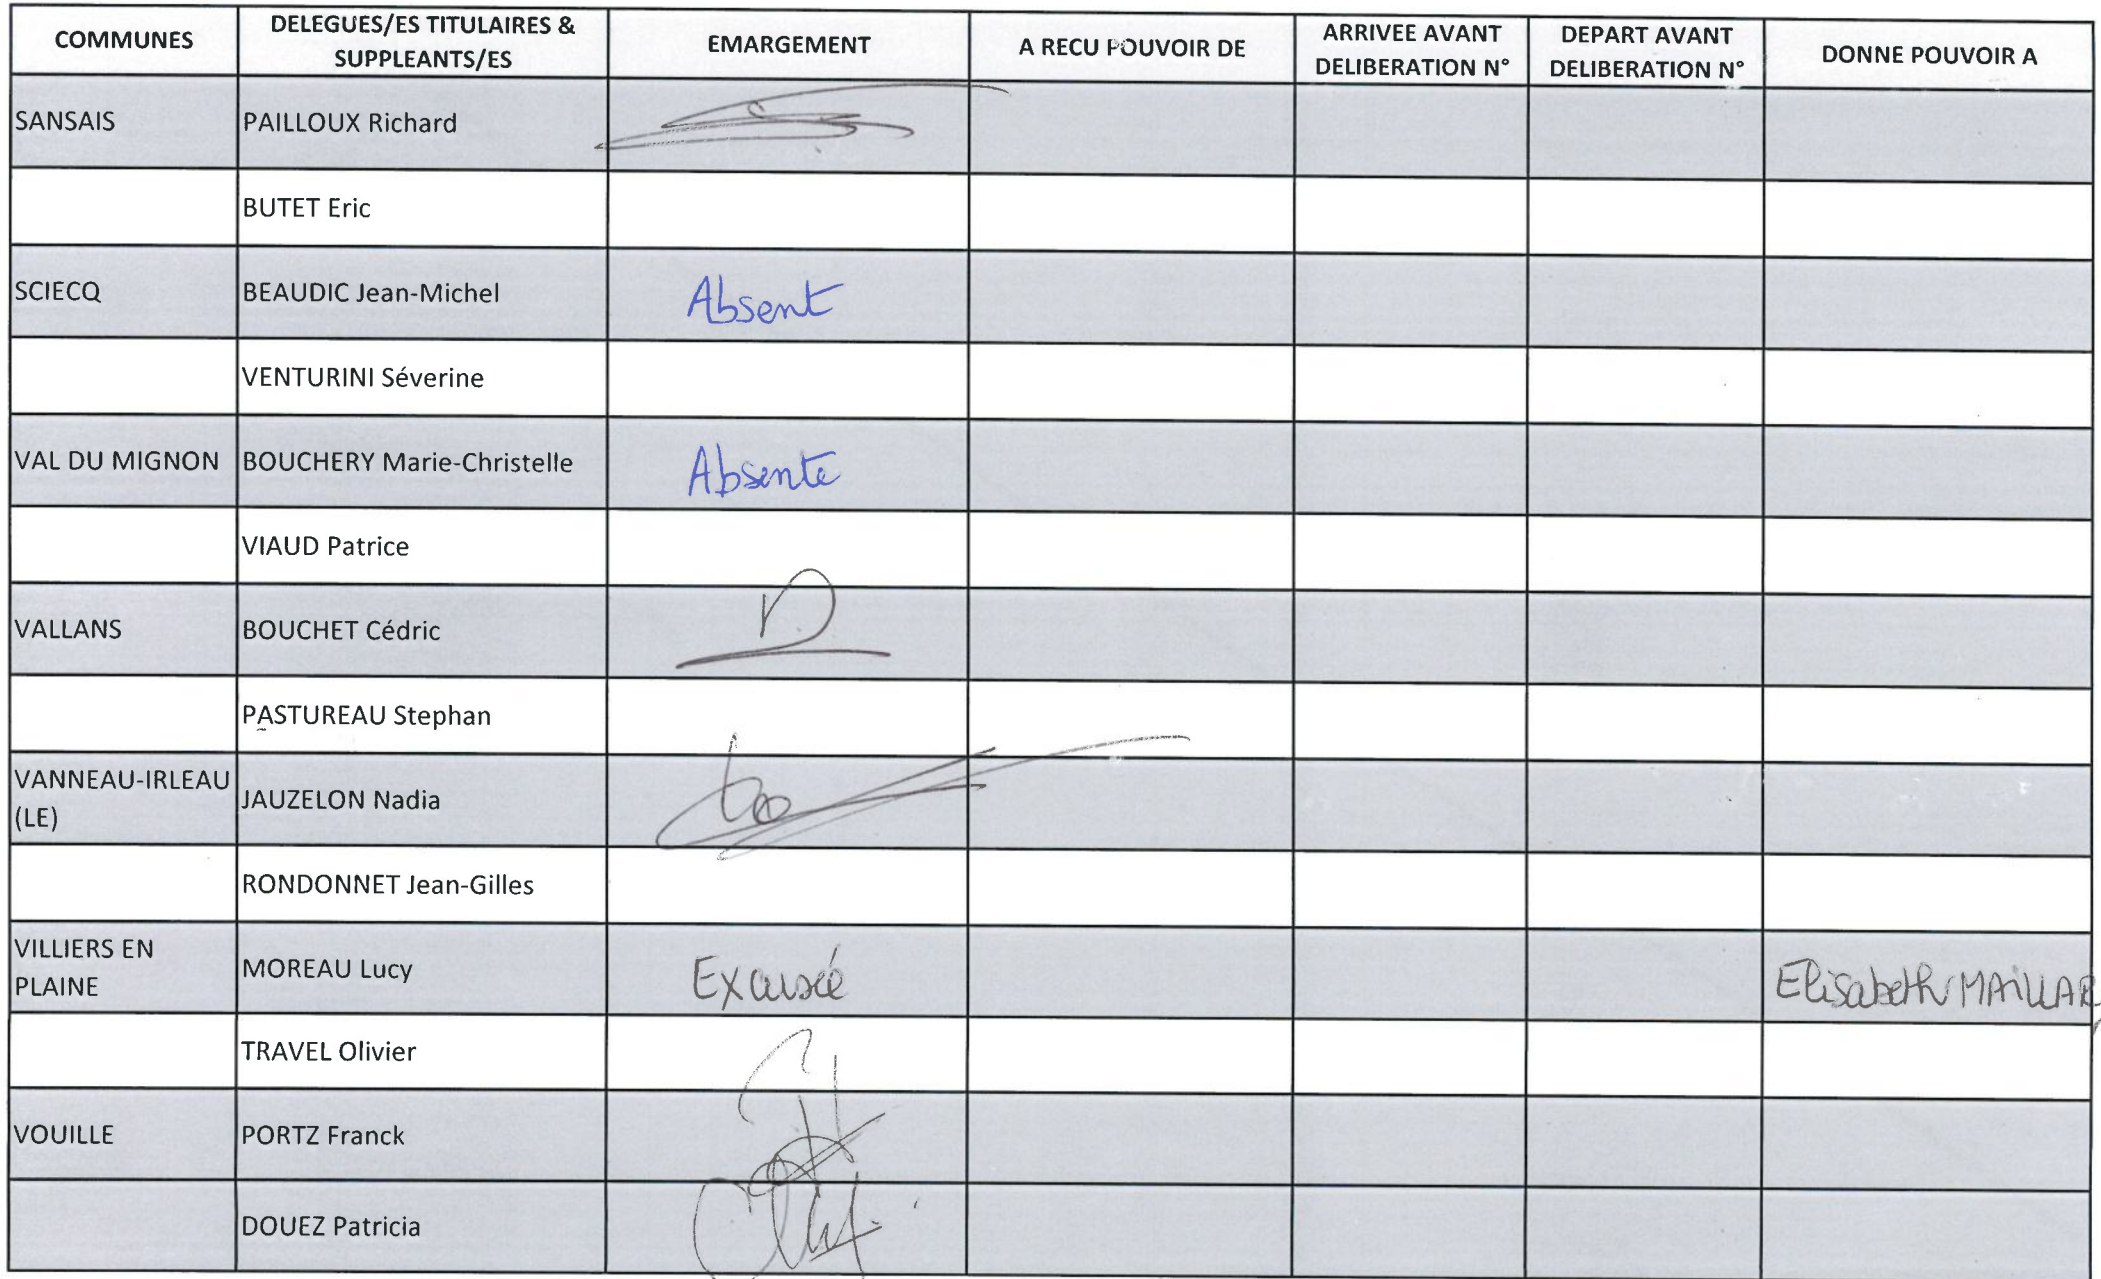 COMMUNES DELEGUES/ES TITULAIRES & SUPPLEANTS/ES EMARGEMENT A RECU POUVOIR DE ARRIVEE AVANT DELIBERATION N° DEPART AVANT DELIBERATION N° DONNE POUVOIR A
SANSAIS PAILLOUX Richard
BUTET Eric
SCIECQ BEAUDIC Jean-Michel Absent
VENTURINI Séverine
VAL DU MIGNON BOUCHERY Marie-Christelle Absente
VIAUD Patrice
VALLANS BOUCHET Cédric
PASTUREAU Stephan
VANNEAU-IRLEAU (LE) JAUZELON Nadia
RONDONNET Jean-Gilles
VILLIERS EN PLAINE MOREAU Lucy Excusée Elisabeth MAILLAR
TRAVEL Olivier
VOUILLE PORTZ Franck
DOUEZ Patricia